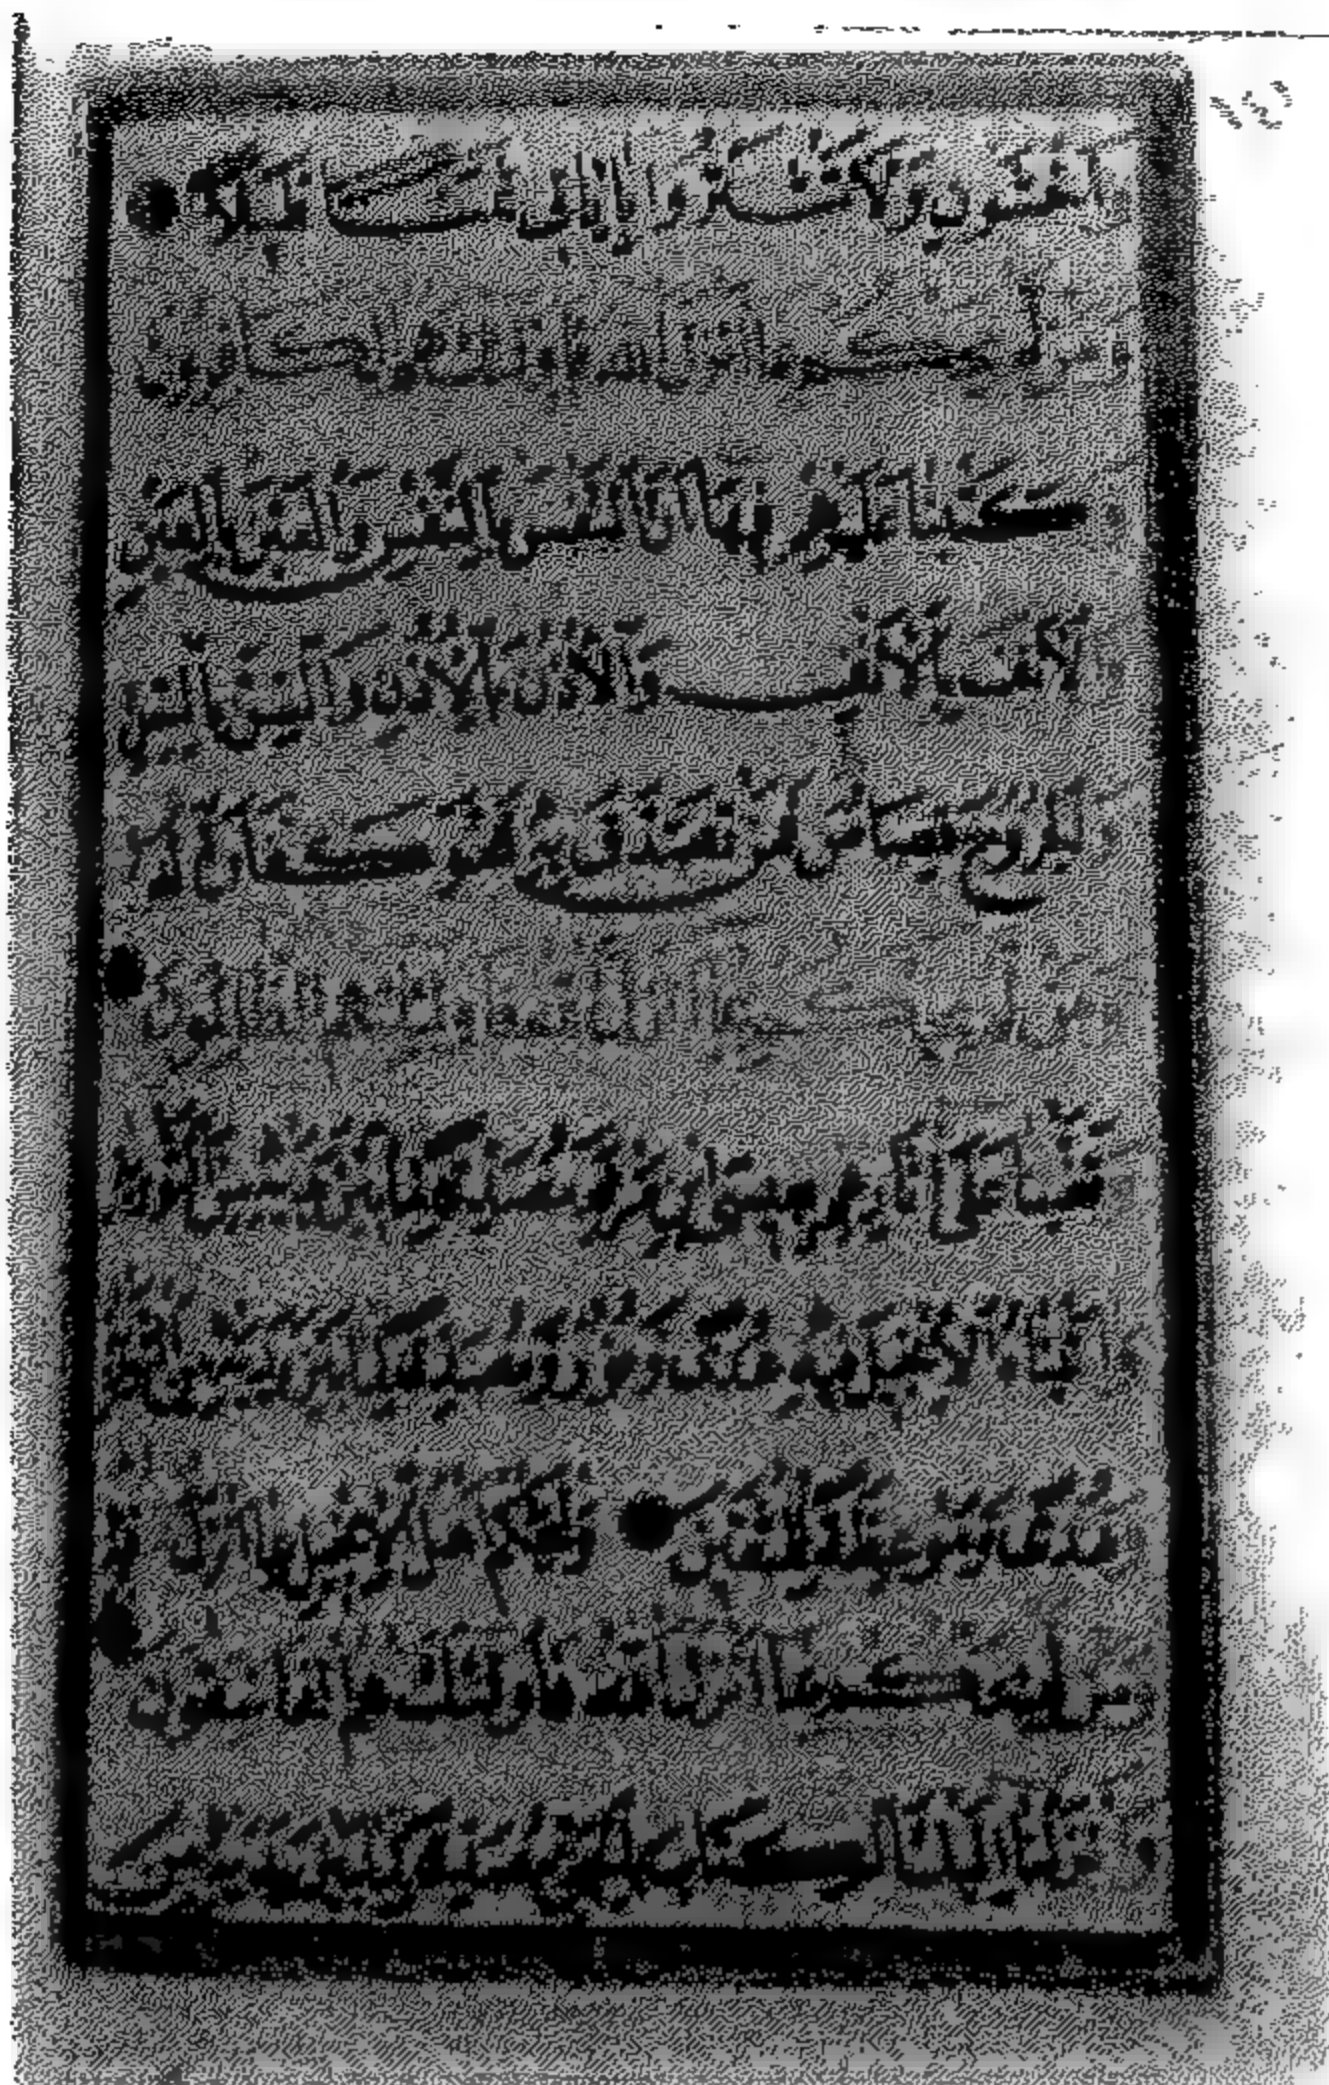 اخشون ولا تشتروا بآياتي ثمنا قليلا
ومن لم يحكم بما انزل الله فاولئك هم الكافرون
وكتبنا عليهم فيها ان النفس بالنفس والعين بالعين
والانف بالانف والاذن بالاذن والسن بالسن
والجروح قصاص فمن تصدق به فهو كفارة له
ومن لم يحكم بما انزل الله فاولئك هم الظالمون
وقفينا على آثارهم بعيسى بن مريم مصدقا لما بين يديه من التوراة
وآتيناه الانجيل فيه هدى ونور ومصدقا لما بين يديه من التوراة
وهدى وموعظة للمتقين وليحكم اهل الانجيل بما انزل الله فيه
ومن لم يحكم بما انزل الله فاولئك هم الفاسقون
وانزلنا اليك الكتاب بالحق مصدقا لما بين يديه